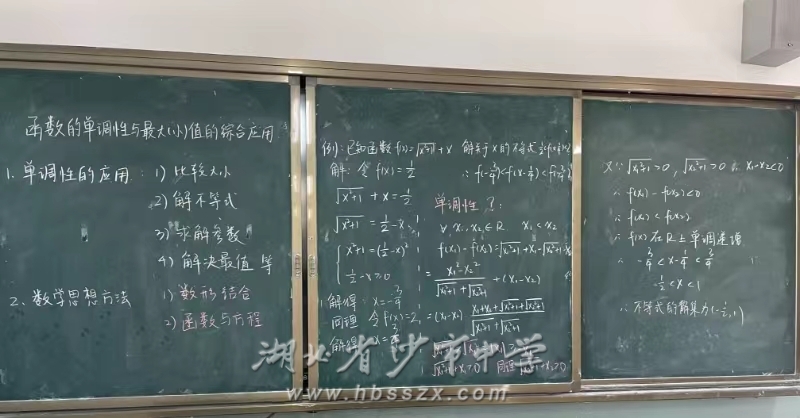 函数的单调性与最大(小)值的综合应用
1. 单调性的应用: 1) 比较大小
2) 解不等式
3) 求解参数
4) 解决最值 等
2. 数学思想方法 1) 数形结合
2) 函数与方程
例: 已知函数 f(x)=√(x²+1)+x 解关于x的不等式
解: 令 f(x)=1/2
∴ f(-3/4)<f(x-1/4)<f(3/4)
√(x²+1)+x=1/2
√(x²+1)=1/2-x
{ x²+1=(1/2-x)²
1/2-x≥0
解得: x=-3/4
同理 令f(x)=2
解得 x=3/4
单调性?:
∀x₁,x₂∈R x₁<x₂
f(x₁)-f(x₂)=√(x₁²+1)+x₁-√(x₂²+1)-x₂
=(x₁²-x₂²)/(√(x₁²+1)+√(x₂²+1))+(x₁-x₂)
=(x₁-x₂)·(x₁+x₂+√(x₁²+1)+√(x₂²+1))/(√(x₁²+1)+√(x₂²+1))
√(x₁²+1)+x₁>0 同理 √(x₂²+1)+x₂>0
又∵ √(x₁²+1)>0, √(x₂²+1)>0 x₁-x₂<0
∴ f(x₁)-f(x₂)<0
∴ f(x₁)<f(x₂)
∴ f(x)在R上单调递增
∴ -3/4<x-1/4<3/4
-1/2<x<1
∴ 不等式的解集为(-1/2,1)
湖北省沙市中学
www.hbsszx.com